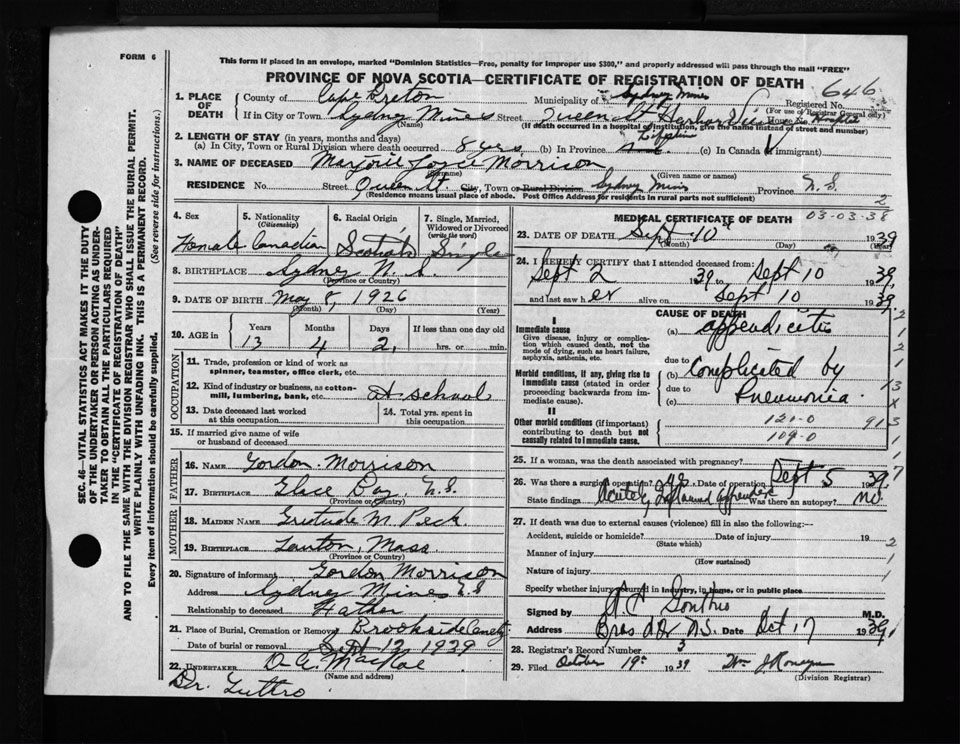 FORM 6
This form if placed in an envelope, marked "Dominion Statistics—Free, penalty for improper use $300," and properly addressed will pass through the mail "FREE"
PROVINCE OF NOVA SCOTIA—CERTIFICATE OF REGISTRATION OF DEATH
646
1. PLACE OF DEATH
County of Cape Breton Municipality of Sydney Mines Registered No.
(For use of Registrar General only)
If in City or Town Sydney Mines Street Queen St. Harbor View Hospital House No.
(Name) (If death occurred in a hospital or institution, give the name instead of street and number)
2. LENGTH OF STAY (in years, months and days)
(a) In City, Town or Rural Division where death occurred 8 yrs (b) In Province (c) In Canada (if immigrant)
3. NAME OF DECEASED Marjorie Joyce Morrison
(Surname) (Given name or names)
RESIDENCE No. Street Queen St. City, Town or Rural Division Sydney Mines Province N.S.
(Residence means usual place of abode. Post Office Address for residents in rural parts not sufficient)
2
SEC. 46—VITAL STATISTICS ACT MAKES IT THE DUTY OF THE UNDERTAKER OR PERSON ACTING AS UNDERTAKER TO OBTAIN ALL THE PARTICULARS REQUIRED IN THE "CERTIFICATE OF REGISTRATION OF DEATH" AND TO FILE THE SAME WITH THE DIVISION REGISTRAR WHO SHALL ISSUE THE BURIAL PERMIT.
WRITE PLAINLY WITH UNFADING INK. THIS IS A PERMANENT RECORD.
Every item of information should be carefully supplied. (See reverse side for instructions.)
4. Sex 5. Nationality 6. Racial Origin 7. Single, Married,
(Citizenship) Widowed or Divorced
(write the word)
Female Canadian Scotch Single
8. BIRTHPLACE Sydney N.S.
(Province or Country)
9. DATE OF BIRTH May 8, 1926
(Month) (Day) (Year)
10. AGE in Years Months Days If less than one day old
13 4 2 hrs. or min.
OCCUPATION
11. Trade, profession or kind of work as
spinner, teamster, office clerk, etc.
12. Kind of industry or business, as cotton-
mill, lumbering, bank, etc. At school
13. Date deceased last worked
at this occupation
14. Total yrs. spent in
this occupation
15. If married give name of wife
or husband of deceased
FATHER
16. NAME Gordon Morrison
17. BIRTHPLACE Glace Bay, N.S.
(Province or Country)
MOTHER
18. MAIDEN NAME Gertrude M. Peck
19. BIRTHPLACE Mass
(Province or Country)
20. Signature of informant Gordon Morrison
Address Sydney Mines N.S
Relationship to deceased Father
21. Place of Burial, Cremation or Removal Brookside Cemetery
Date of burial or removal Sept 12 1939
22. UNDERTAKER MacRae
(Name and address)
Dr.
MEDICAL CERTIFICATE OF DEATH 03-03-38
23. DATE OF DEATH Sept 10 1939
(Month) (Day) (Year)
24. I HEREBY CERTIFY that I attended deceased from:
Sept 2 1939 Sept 10 1939
and last saw her alive on Sept 10 1939
CAUSE OF DEATH
I
Immediate cause
Give disease, injury or complication which caused death, not the mode of dying, such as heart failure, asphyxia, asthenia, etc.
(a) appendicitis
due to
Morbid conditions, if any, giving rise to immediate cause (stated in order proceeding backwards from immediate cause).
(b) Complicated by
due to
(c) Pneumonia
II
Other morbid conditions (if important) contributing to death but not causally related to immediate cause.
121-0
109-0
25. If a woman, was the death associated with pregnancy?
26. Was there a surgical operation? yes Date of operation Sept 5 1939
State findings Acutely Inflamed appendix Was there an autopsy? no
27. If death was due to external causes (violence) fill in also the following:—
Accident, suicide or homicide? Date of injury 19
(State which)
Manner of injury
(How sustained)
Nature of injury
Specify whether injury occurred in industry, in home, or in public place
Signed by M.D.
Address Bras d'Or N.S. Date Oct 17 1939
28. Registrar's Record Number 3
29. Filed October 19th 1939
(Division Registrar)